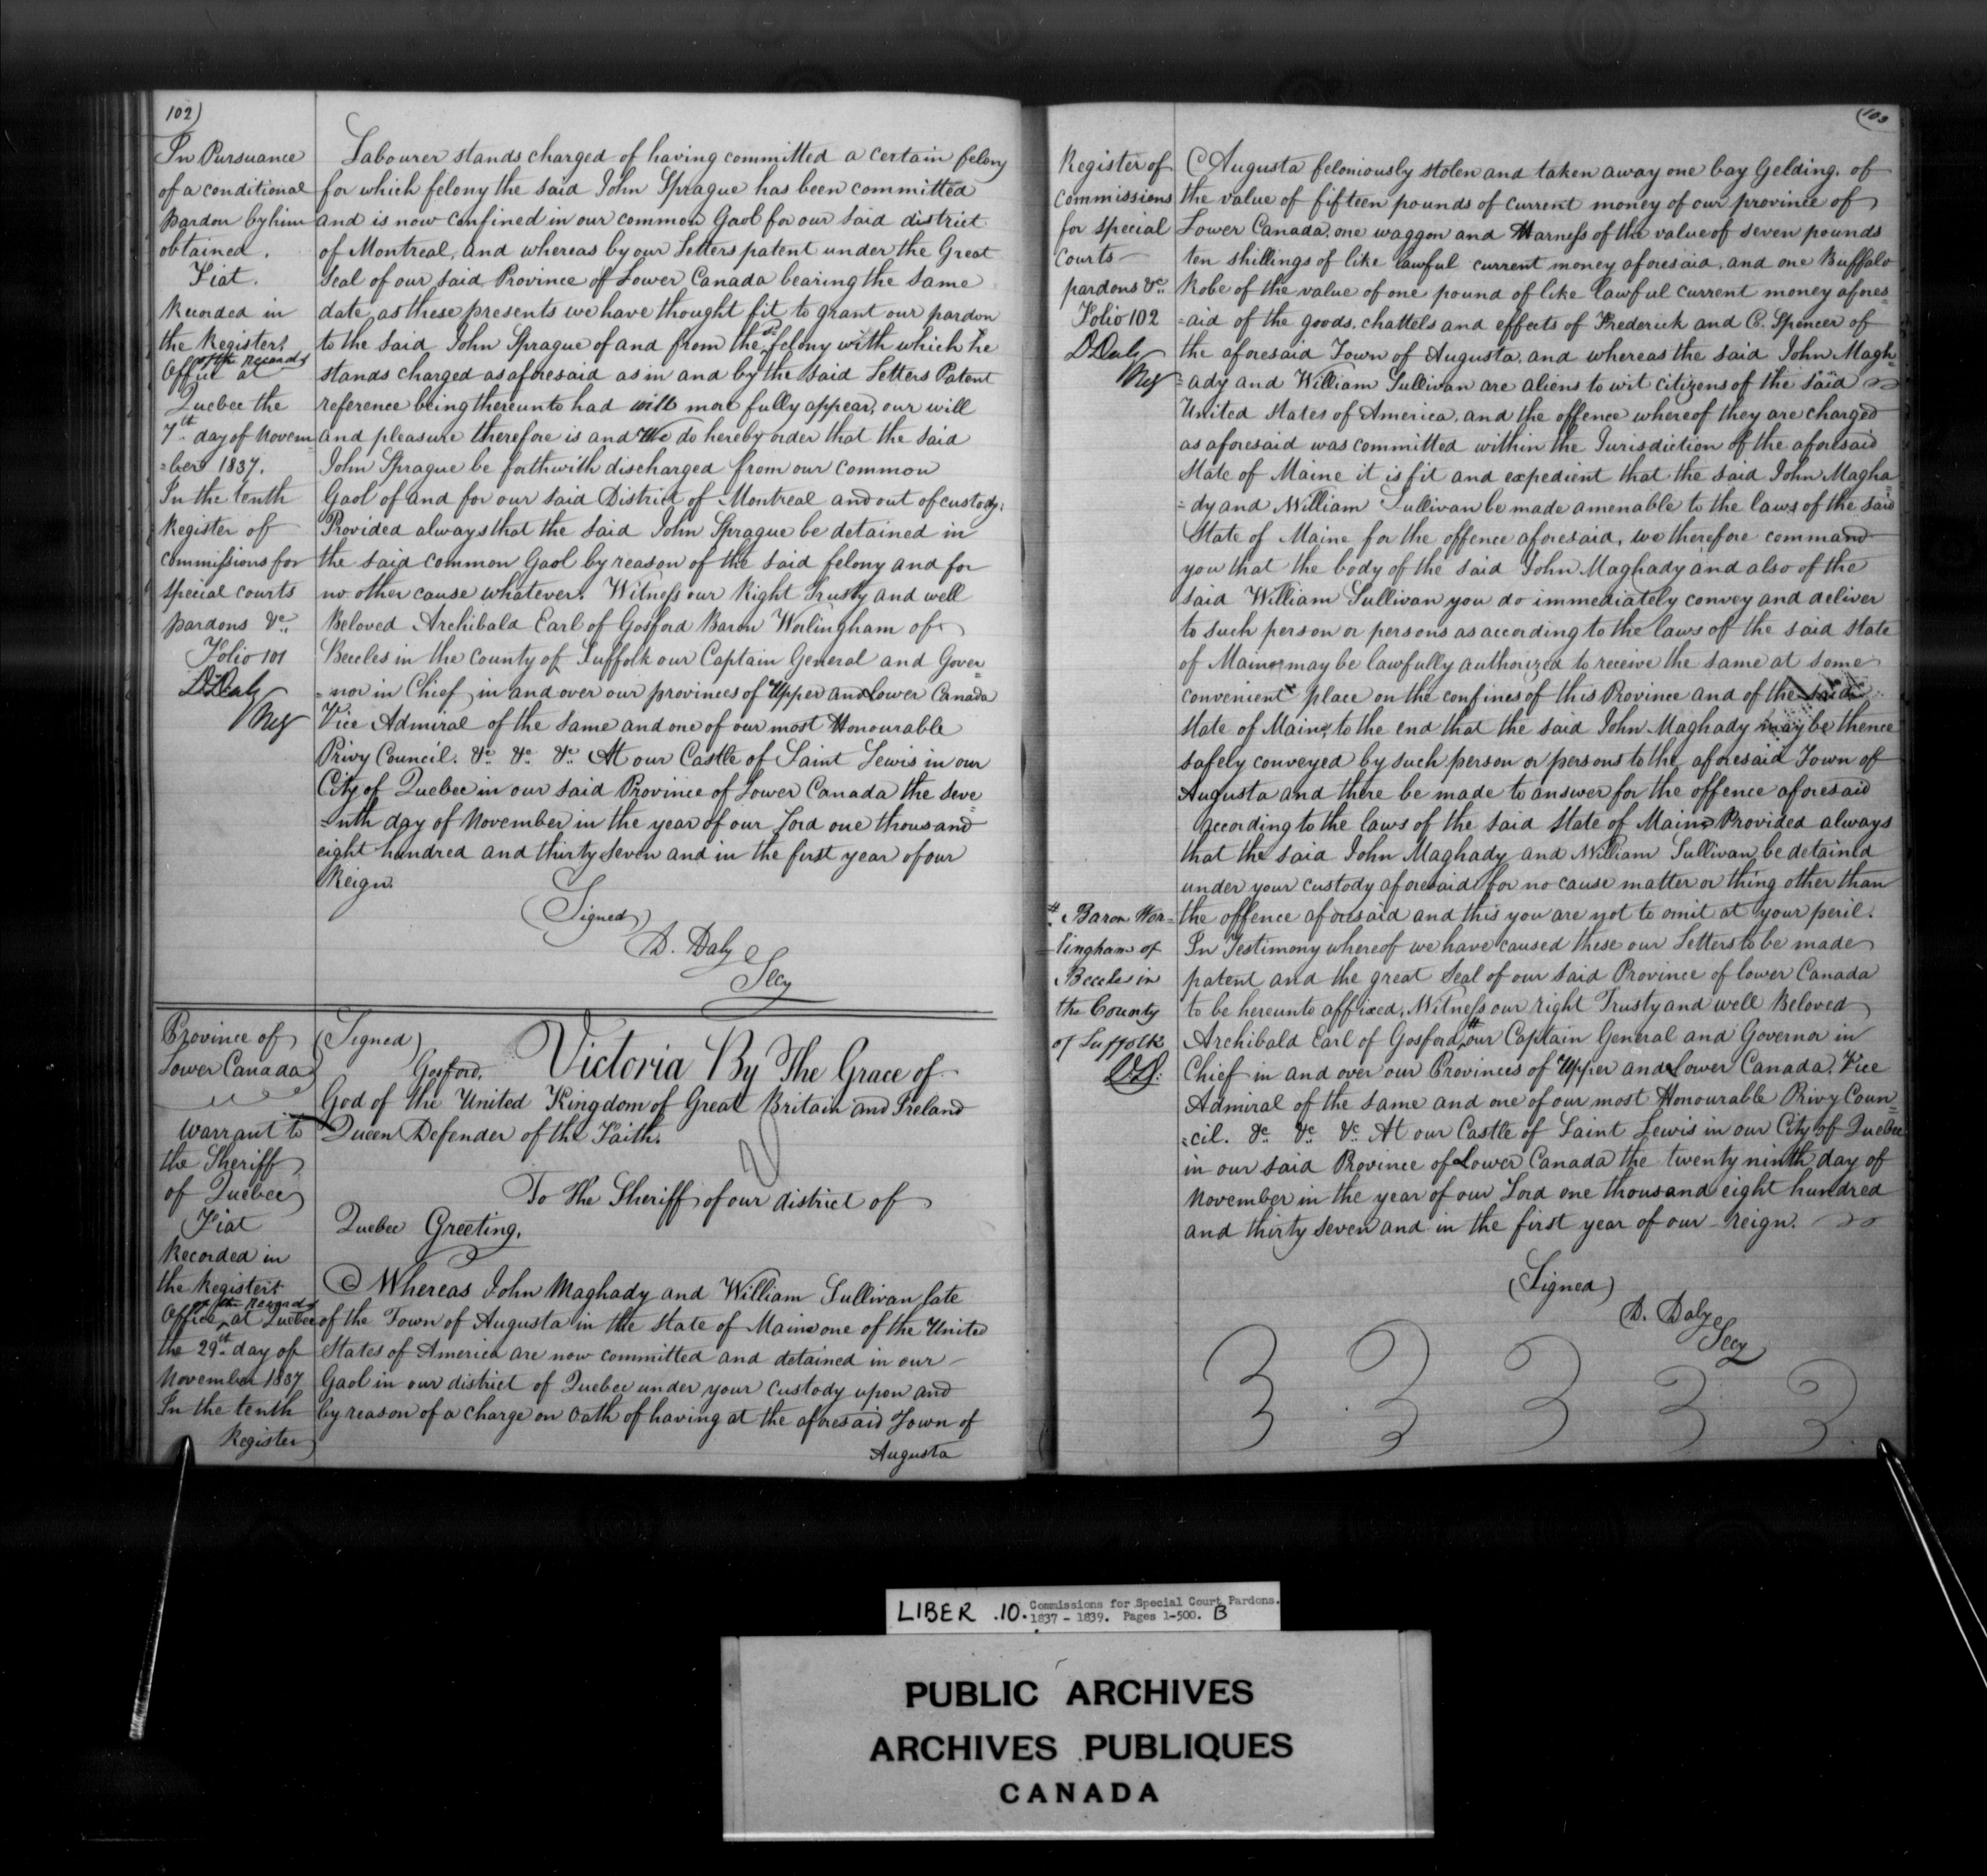 102)
In Pursuance
of a conditional
pardon by him
obtained.
Fiat.
Recorded in
the Register's
of the records
Office at
Quebec the
7th day of Novem
=ber 1837.
In the tenth
Register of
Commissions for
special courts
pardons &c.
Folio 101
D Daly
Reg
Labourer stands charged of having committed a certain felony
for which felony the said John Sprague has been committed
and is now confined in our common Gaol for our said district
of Montreal, and whereas by our Letters patent under the Great
Seal of our said Province of Lower Canada bearing the same
date as these presents we have thought fit to grant our pardon
to the said John Sprague of and from the sd felony with which he
stands charged as aforesaid as in and by the said Letters Patent
reference being thereunto had will more fully appear, our will
and pleasure therefore is and We do hereby order that the said
John Sprague be forthwith discharged from our common
Gaol of and for our said District of Montreal and out of custody:
Provided always that the said John Sprague be detained in
the said common Gaol by reason of the said felony and for
no other cause whatever. Witness our Right Trusty and well
Beloved Archibald Earl of Gosford Baron Worlingham of
Beccles in the county of Suffolk our Captain General and Gover
=nor in Chief in and over our provinces of Upper and Lower Canada
Vice Admiral of the same and one of our most Honourable
Privy Council. &c &c &c At our Castle of Saint Lewis in our
City of Quebec in our said Province of Lower Canada the seve
=nth day of November in the year of our Lord one thousand
eight hundred and thirty seven and in the first year of our
Reign.
(Signed)
D. Daly
Secy
Province of
Lower Canada
Warrant to
the Sheriff
of Quebec
Fiat
Recorded in
the Register's
of the Records
Office at Quebec
the 29th day of
November 1837
In the tenth
Register
(Signed)
Gosford.
Victoria By The Grace of
God of the United Kingdom of Great Britain and Ireland
Queen Defender of the Faith.
To the Sheriff of our district of
Quebec Greeting.
Whereas John Maghady and William Sullivan late
of the Town of Augusta in the state of Maine one of the United
States of America are now committed and detained in our
Gaol in our district of Quebec under your custody upon and
by reason of a charge on Oath of having at the aforesaid Town of
Augusta
(103
Register of
Commissions
for special
Courts
pardons &c.
Folio 102
D Daly
Reg
Augusta feloniously stolen and taken away one bay Gelding, of
the value of fifteen pounds of current money of our province of
Lower Canada, one waggon and Harness of the value of seven pounds
ten shillings of like lawful current money aforesaid, and one Buffalo
Robe of the value of one pound of like lawful current money afores
=aid of the goods, chattels and effects of Frederick and C. Spencer of
the aforesaid Town of Augusta, and whereas the said John Magh=
=ady and William Sullivan are aliens to wit citizens of the said
United States of America, and the offence whereof they are charged
as aforesaid was committed within the Jurisdiction of the aforesaid
State of Maine it is fit and expedient that the said John Magha
=dy and William Sullivan be made amenable to the laws of the said
State of Maine for the offence aforesaid, we therefore command
you that the body of the said John Maghady and also of the
said William Sullivan you do immediately convey and deliver
to such person or persons as according to the laws of the said state
of Maine may be lawfully authorized to receive the same at some
convenient place on the confines of this Province and of the said
state of Maine, to the end that the said John Maghady may be thence
safely conveyed by such person or persons to the aforesaid Town of
Augusta and there be made to answer for the offence aforesaid
according to the laws of the said state of Maine Provided always
that the said John Maghady and William Sullivan be detained
under your custody aforesaid for no cause matter or thing other than
the offence aforesaid and this you are not to omit at your peril.
In Testimony whereof we have caused these our Letters to be made
patent and the great Seal of our said Province of lower Canada
to be hereunto affixed, Witness our right Trusty and well Beloved
Archibald Earl of Gosford # our Captain General and Governor in
Chief in and over our Provinces of Upper and Lower Canada, Vice
Admiral of the same and one of our most Honourable Privy Coun=
=cil. &c &c &c At our Castle of Saint Lewis in our City of Quebec
in our said Province of Lower Canada the twenty ninth day of
November in the year of our Lord one thousand eight hundred
and thirty seven and in the first year of our reign.
# Baron Wor=
lingham of
Beccles in
the County
of Suffolk
DD.
(Signed)
D. Daly
Secy
LIBER .10. Commissions for Special Court Pardons.
1837 - 1839. Pages 1-500. B
PUBLIC ARCHIVES
ARCHIVES PUBLIQUES
CANADA